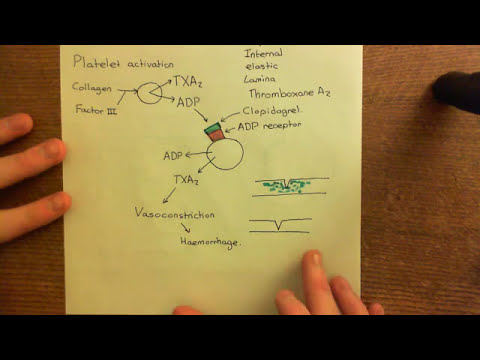 Platelet activation
Internal
elastic
Lamina
Thromboxane A2
Collagen
Factor III
TXA2
ADP
Clopidogrel.
ADP receptor
ADP
TXA2
Vasoconstriction
Haemorrhage.